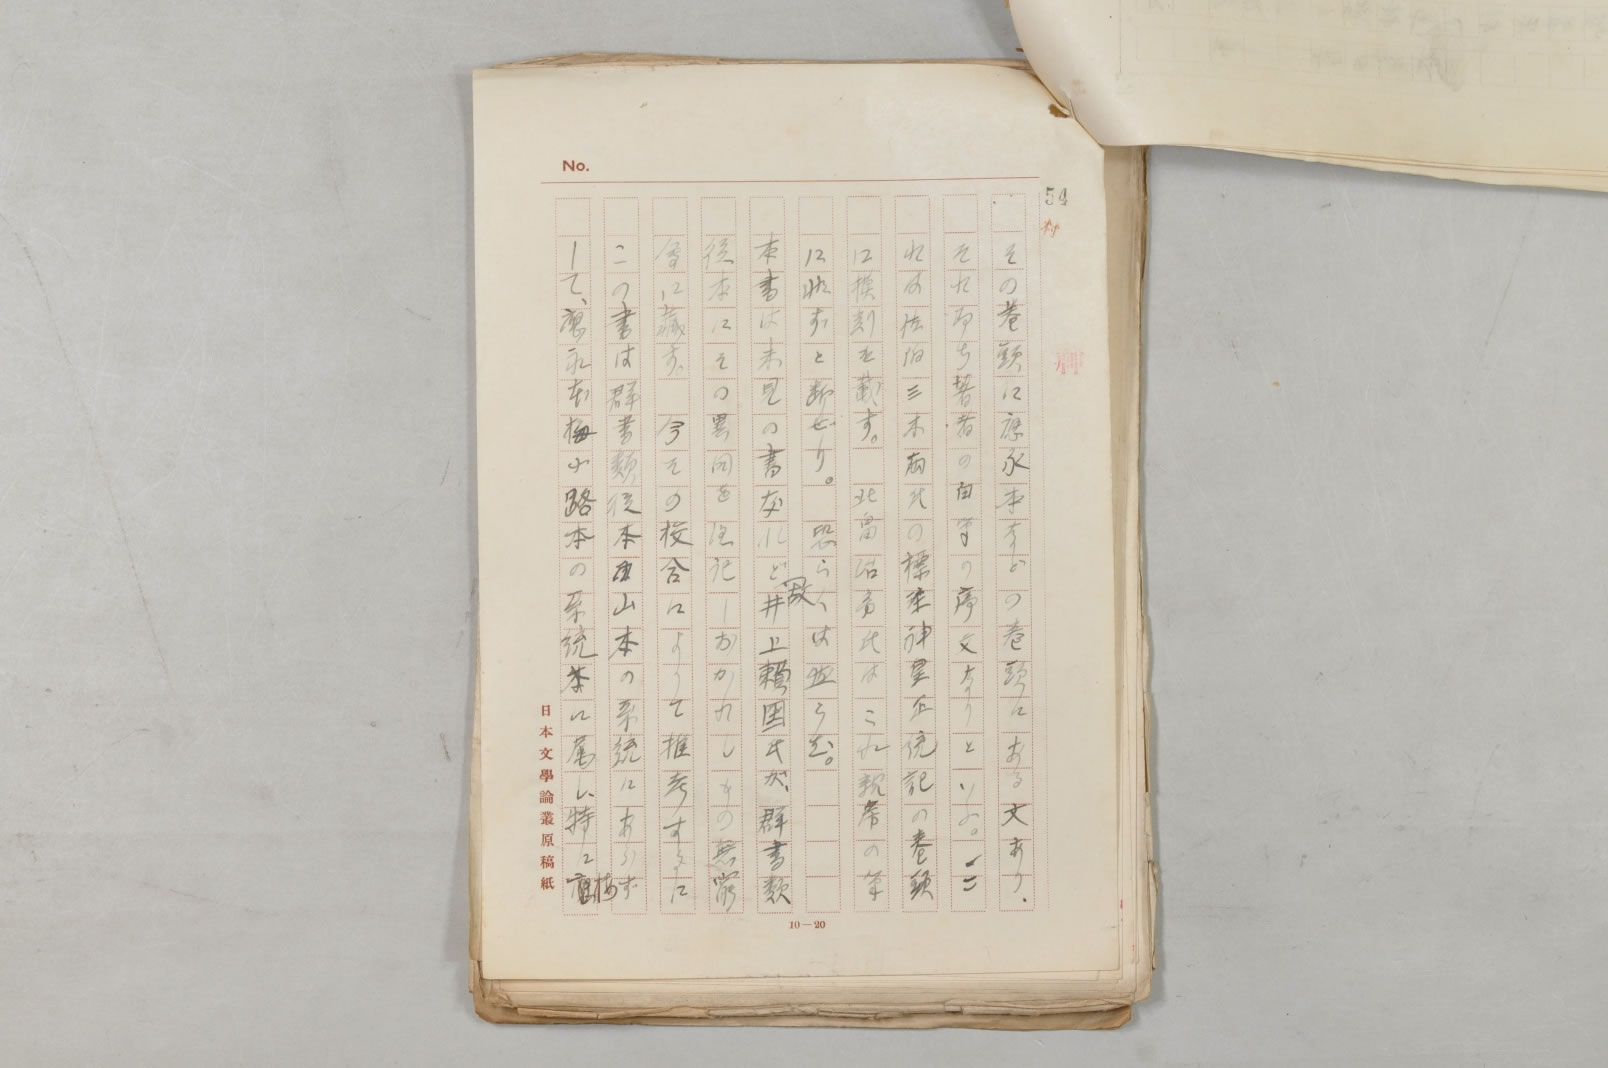 No.
54
その巻頭に應永本などの巻頭にある文あり、
それ即ち著者の自筆の序文なりといふ。こ
れは佐伯三木両氏の標註神皇正統記の巻頭
に模刻を載す。 北畠治房氏はこれ親房の筆
に非ずと断せり。 恐らくは然らむ。
本書は未見の書なれど故井上頼囶氏が、群書類
從本にその異同を注記しおかれしもの無窮
會に藏す。 今その校合によりて推考するに
この書は群書類從本白山本の系統にあらず
して、應永本梅小路本の系統に属し特に梅
日本文學論叢原稿紙
10—20